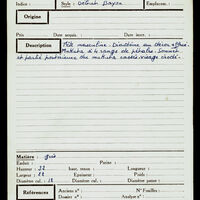 Indice : Style : Debut Bayon Emplacem. :
Origine
Prix Date acquis : Date inscr. :
Description Tête masculine. Diadème au décor effacé.
Mukuta à 4 rangs de pétales. Sommet
et partie postérieure du mukuta cassés visage érodé.
Matière : grès
Enduit : Patine :
Hauteur : 32 haut. tenon : Longueur :
Largeur : 22 Epaisseur : Profondeur :
Diamètre, col. : 18 Diamètre cal. : Diamètre panse :
Références Anciens nos : No Fouilles :
Dossier : Analyse no :